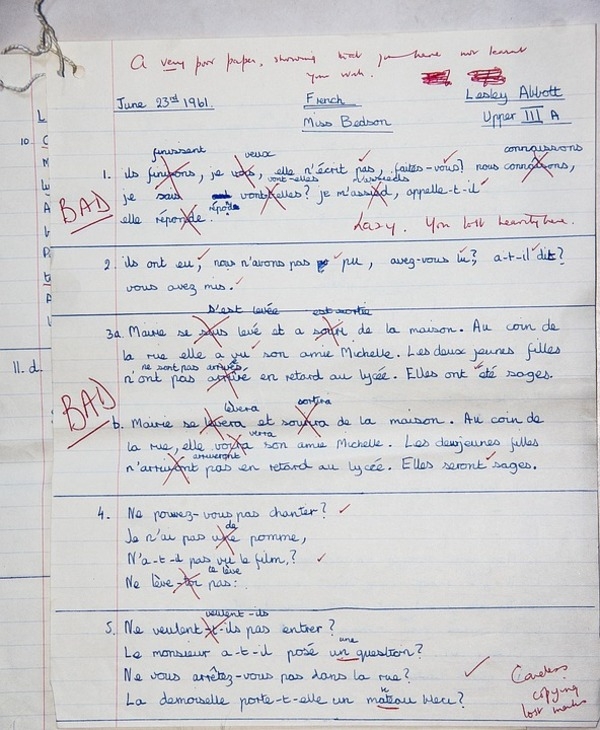 A very poor paper, showing that you have not learnt
your work.
June 23rd 1961. French Lesley Abbott
Miss Bedson Upper III A
finissent veux connaissons
1. ils finissons, je vois, elle n'écrit pas, faites-vous? nous connaisons,
vont-elles m'assieds
je sais vont-elles? je m'assied, appelle-t-il
BAD
répond
elle réponde. Lazy. You lost heavily here.
2. ils ont eu, nous n'avons pas pu, avez-vous lu? a-t-il dit?
vous avez mis.
s'est levée est sortie
3a. Marie se suis levé et a souri de la maison. Au coin de
la rue elle a vu son amie Michelle. Les deux jeunes filles
ne sont pas arrivées
n'ont pas arrivé en retard au lycée. Elles ont été sages.
BAD
lèvera sortira
b. Marie se levera et soutira de la maison. Au coin de
verra
la rue, elle voira son amie Michelle. Les deux jeunes filles
arriveront
n'arriyont pas en retard au lycée. Elles seront sages.
4. Ne pouvez-vous pas chanter?
de
Je n'ai pas une pomme,
N'a-t-il pas vu le film?
te lève
Ne lève-toi pas:
veulent-ils
5. Ne veulent-t-ils pas entrer?
une
Le monsieur a-t-il posé un question?
Ne vous arrêtez-vous pas dans la rue?
La demoiselle porte-t-elle un mateau bleu?
Careless
copying
lost marks
10
11. d.